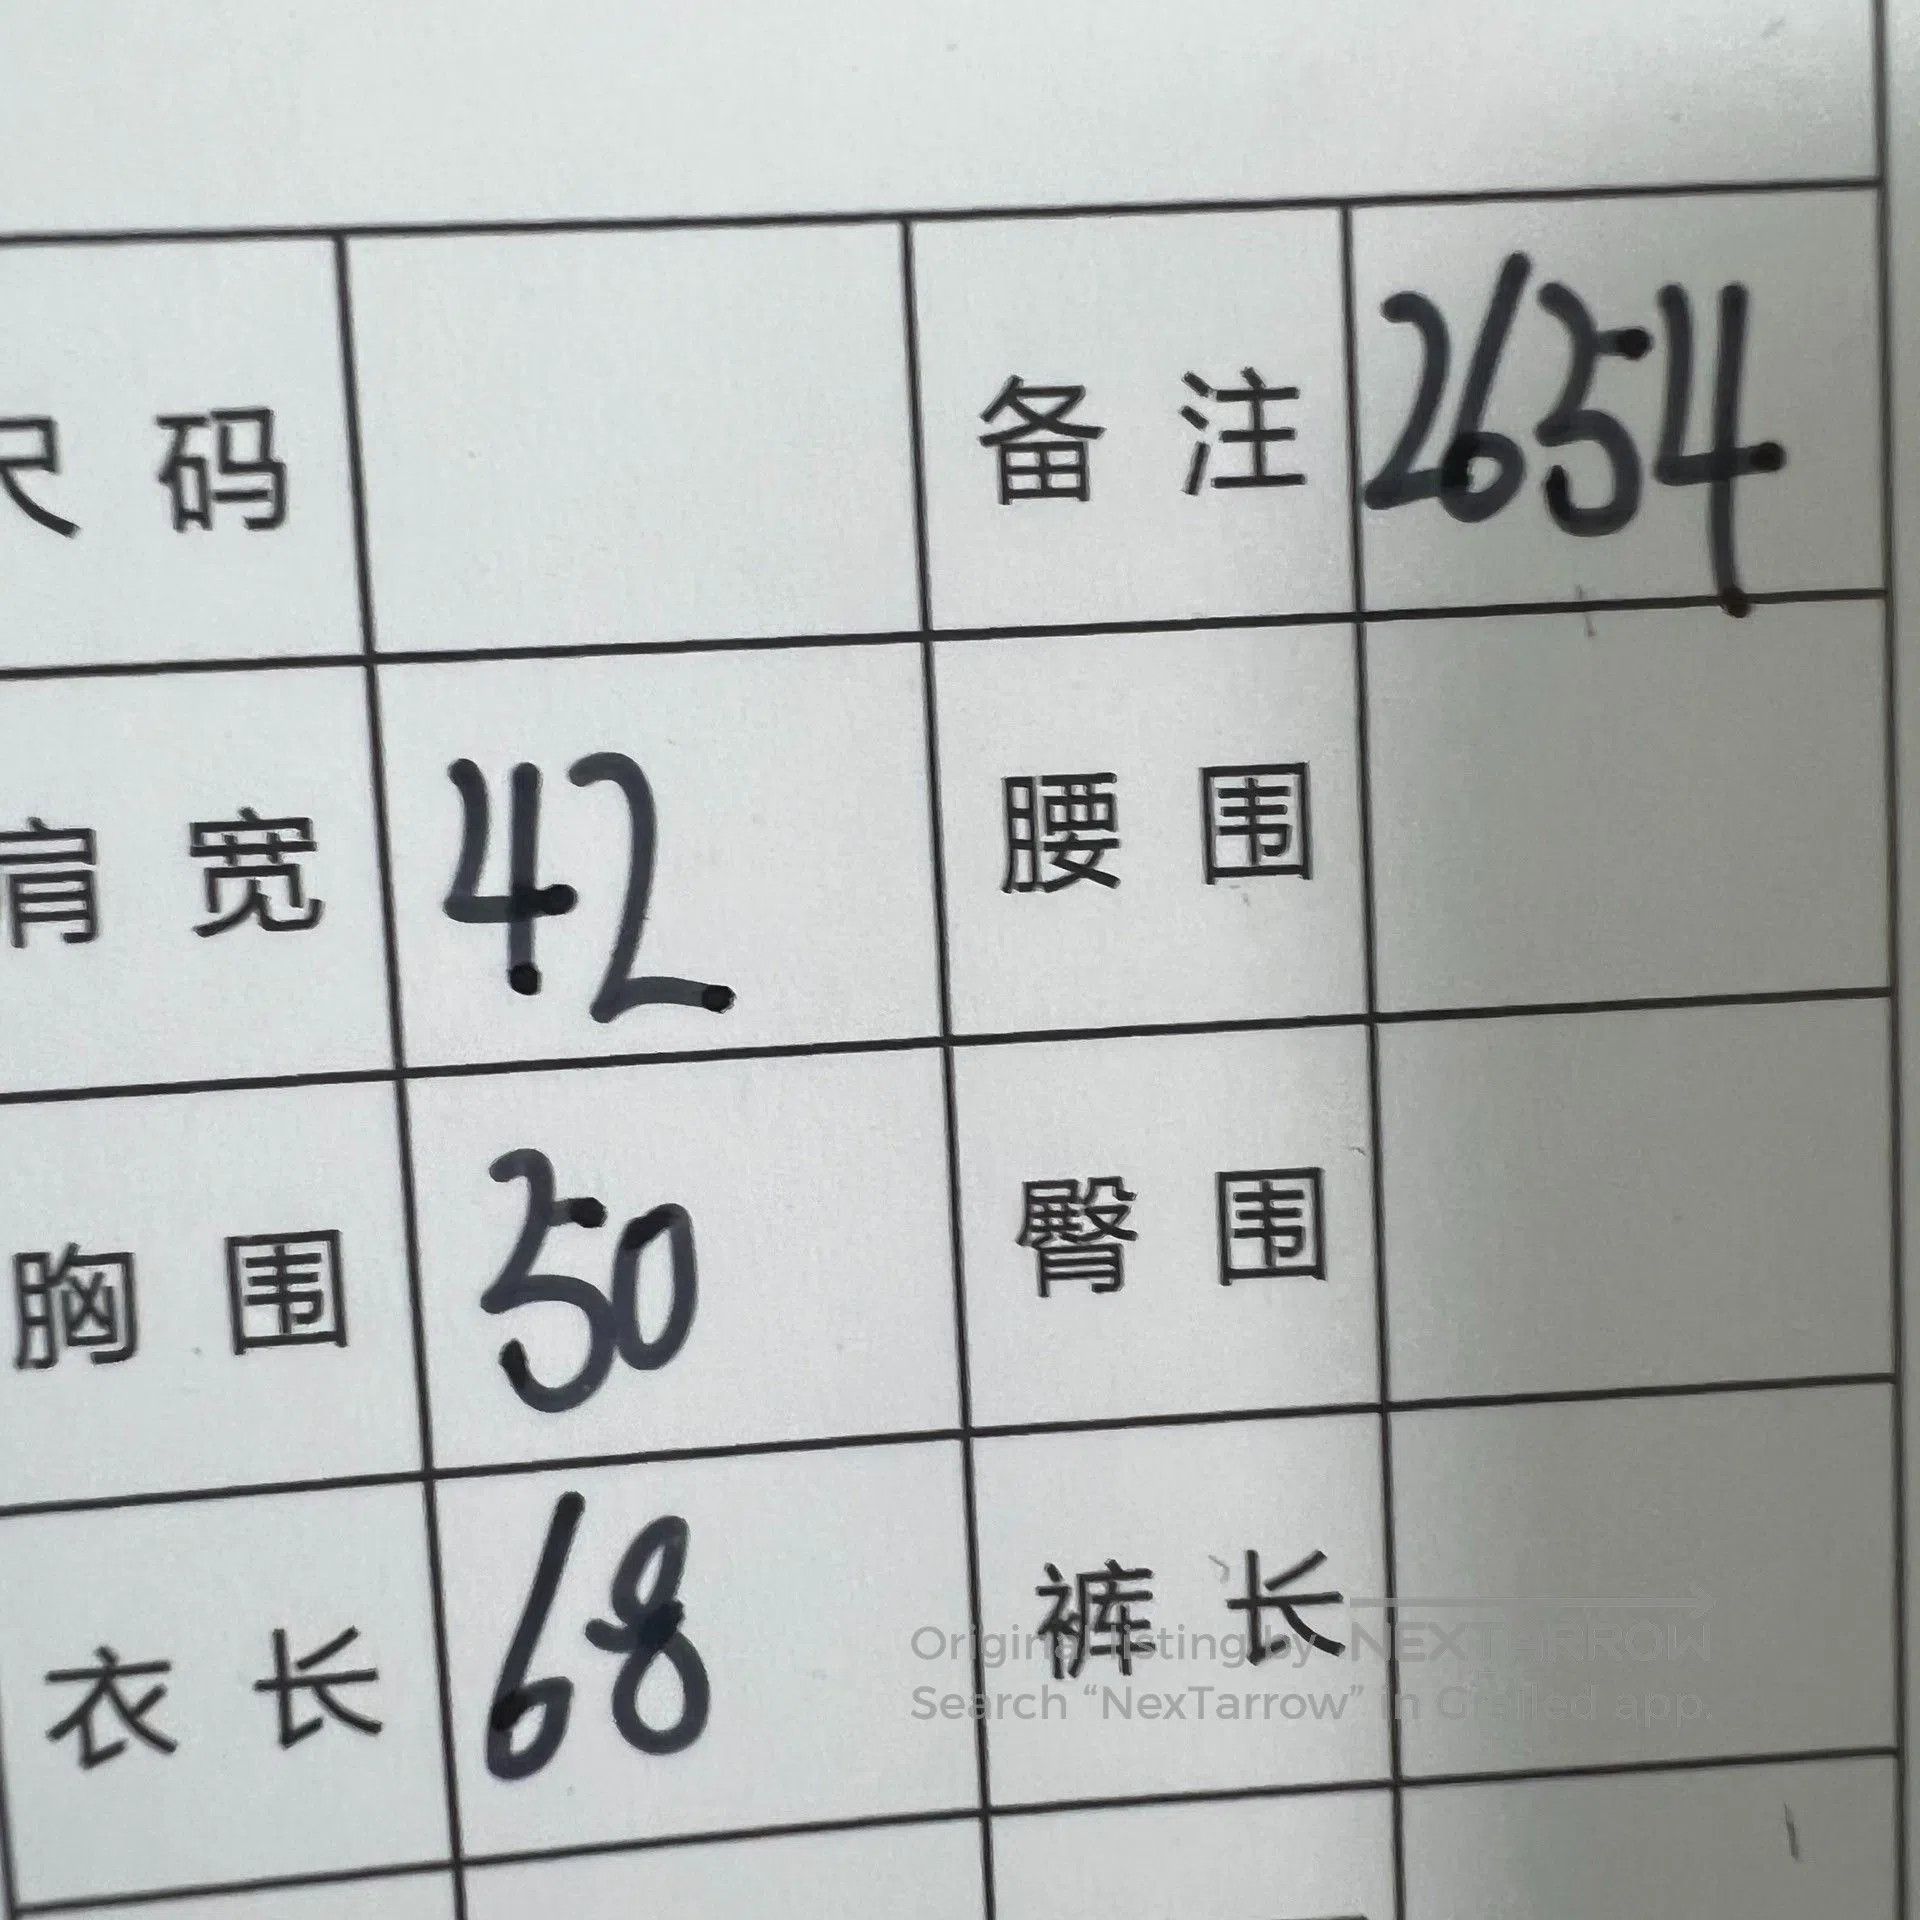 尺码 备注 2654
肩宽 42 腰围
胸围 50 臀围
衣长 68 裤长
Original listing by NEXTARROW
Search “NexTarrow” in Grailed app.